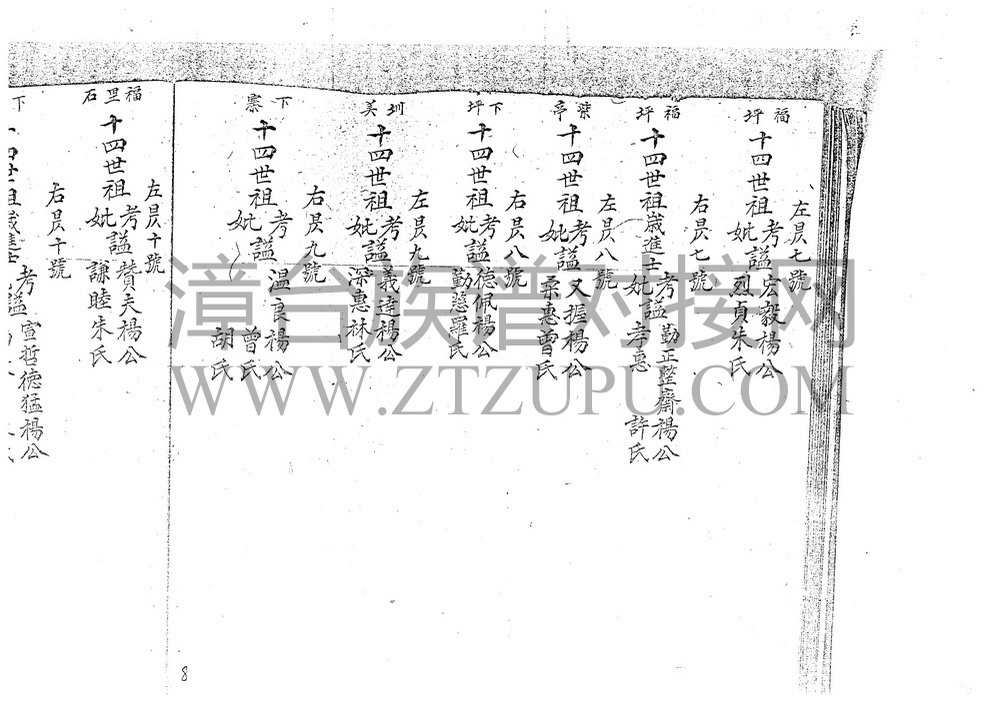 左昃七號
福坪
十四世祖
考謚宏毅楊公
妣烈貞朱氏
右昃七號
福坪
十四世祖歲進士
考謚勤正整齋楊公
妣孝惠許氏
左昃八號
十四世祖
考謚又握楊公
妣柔惠曾氏
右昃八號
下坪
十四世祖
考謚德佩楊公
妣勤慈羅氏
左昃九號
圳美
十四世祖
考謚義達楊公
妣深惠林氏
右昃九號
下寨
十四世祖
考謚温良楊公
妣曾氏
胡氏
左昃十號
福里石
十四世祖
考謚贊夫楊公
妣謙睦朱氏
右昃十號
下
考謚宣哲德猛楊公
漳台族谱对接网
WWW.ZTZUPU.COM
8